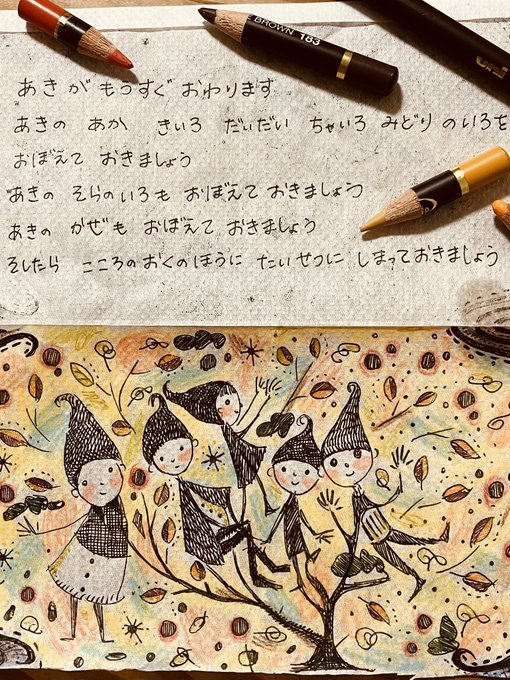 BROWN 183
uni
あきが もうすぐ おわります
あきの あか きいろ だいだい ちゃいろ みどり のいろを
おぼえて おきましょう
あきの そらのいろも おぼえて おきましょう
あきの かぜも おぼえて おきましょう
そしたら こころのおくのほうに たいせつに しまっておきましょう